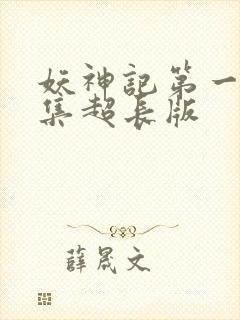 妖神記第一
集超長版
薛晟文